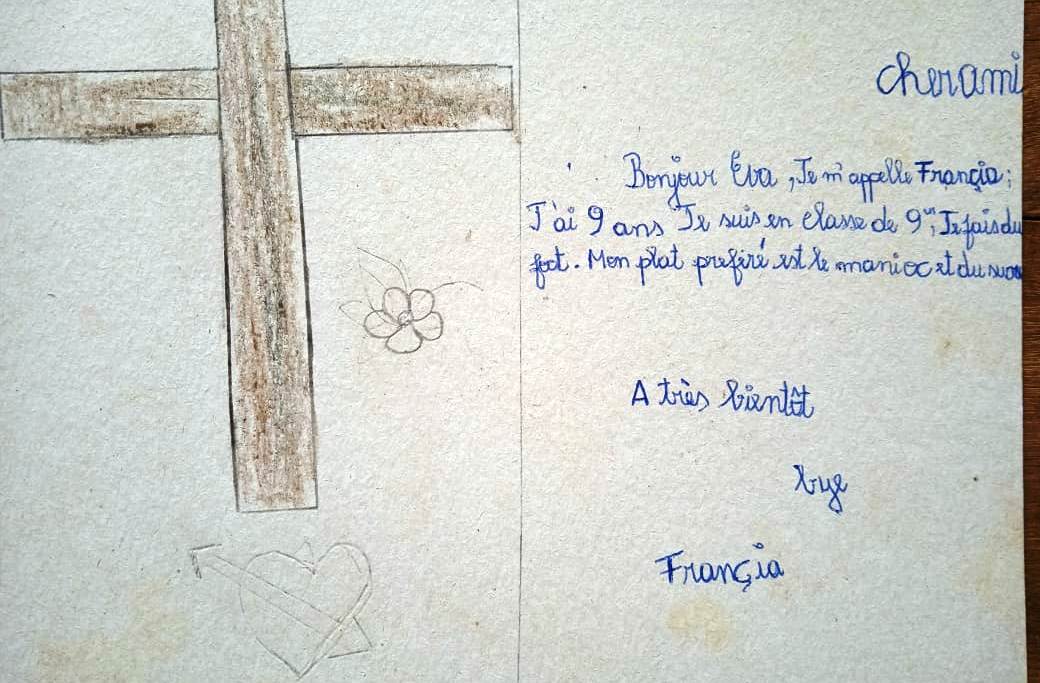 cher ami
Bonjour Éva, Je m'appelle Françia;
J'ai 9 ans Je suis en classe de 9e; Je fais du
foot. Mon plat prefiré est le manioc et du
A très bientôt
bye
Françia